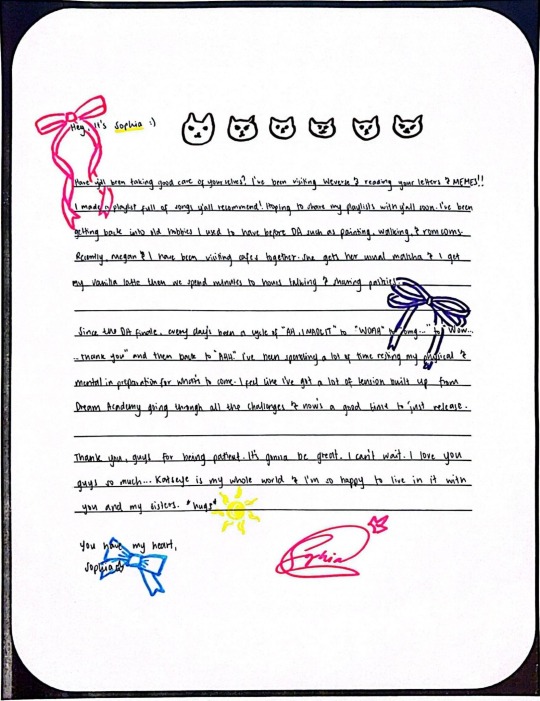 Hey, it's Sophia :)
Have y'all been taking good care of yourselves? I've been visiting Weverse & reading your letters & MEMES!!
I made a playlist full of songs y'all recommend! Hoping to share my playlists with y'all soon. I've been
getting back into old hobbies I used to have before DA such as painting, walking, & romcoms.
Recently, megan & I have been visiting cafes together. She gets her usual matcha & I get
my vanilla latte then we spend minutes to hours talking & sharing pastries.
Since the DA finale, every day's been a cycle of "AH, I MADE IT" to "WOAH" to "omg..." to "Wow...
...thank you" and then back to "AHH." I've been spending a lot of time resting my physical &
mental in preparation for what's to come. I feel like I've got a lot of tension built up from
Dream Academy going through all the challenges & now's a good time to just release.
Thank you, guys for being patient. It's gonna be great. I can't wait. I love you
guys so much... Katseye is my whole world & I'm so happy to live in it with
you and my sisters. *hugs*
you have my heart,
Sophia
Sophia